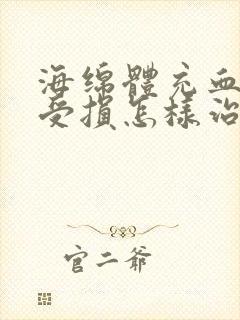 海绵體充血
受損怎樣治
官二爺